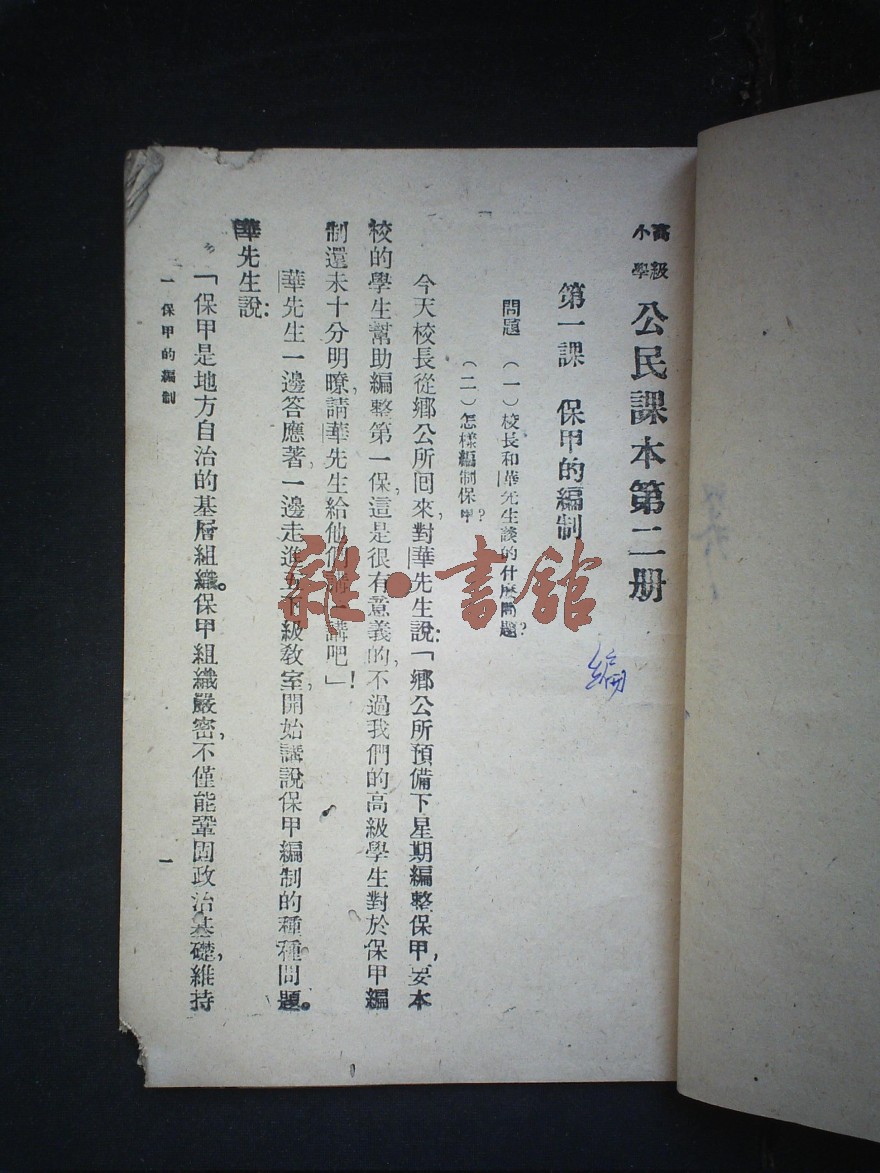 高級小學 公民課本第二册
第一課　保甲的編制
問題　(一)校長和華先生談的什麼問題?
(二)怎樣編制保甲?
今天校長從鄉公所回來,對華先生說:「鄉公所預備下星期編整保甲,要本
校的學生幫助編整第一保,這是很有意義的,不過我們的高級學生對於保甲編
制還未十分明瞭,請華先生給他們講一講吧!」
華先生一邊答應著,一邊走進五下級教室,開始講說保甲編制的種種問題。
華先生說:
「保甲是地方自治的基層組織。保甲組織嚴密,不僅能鞏固政治基礎,維持
一 保甲的編制
一
編
雜·書館